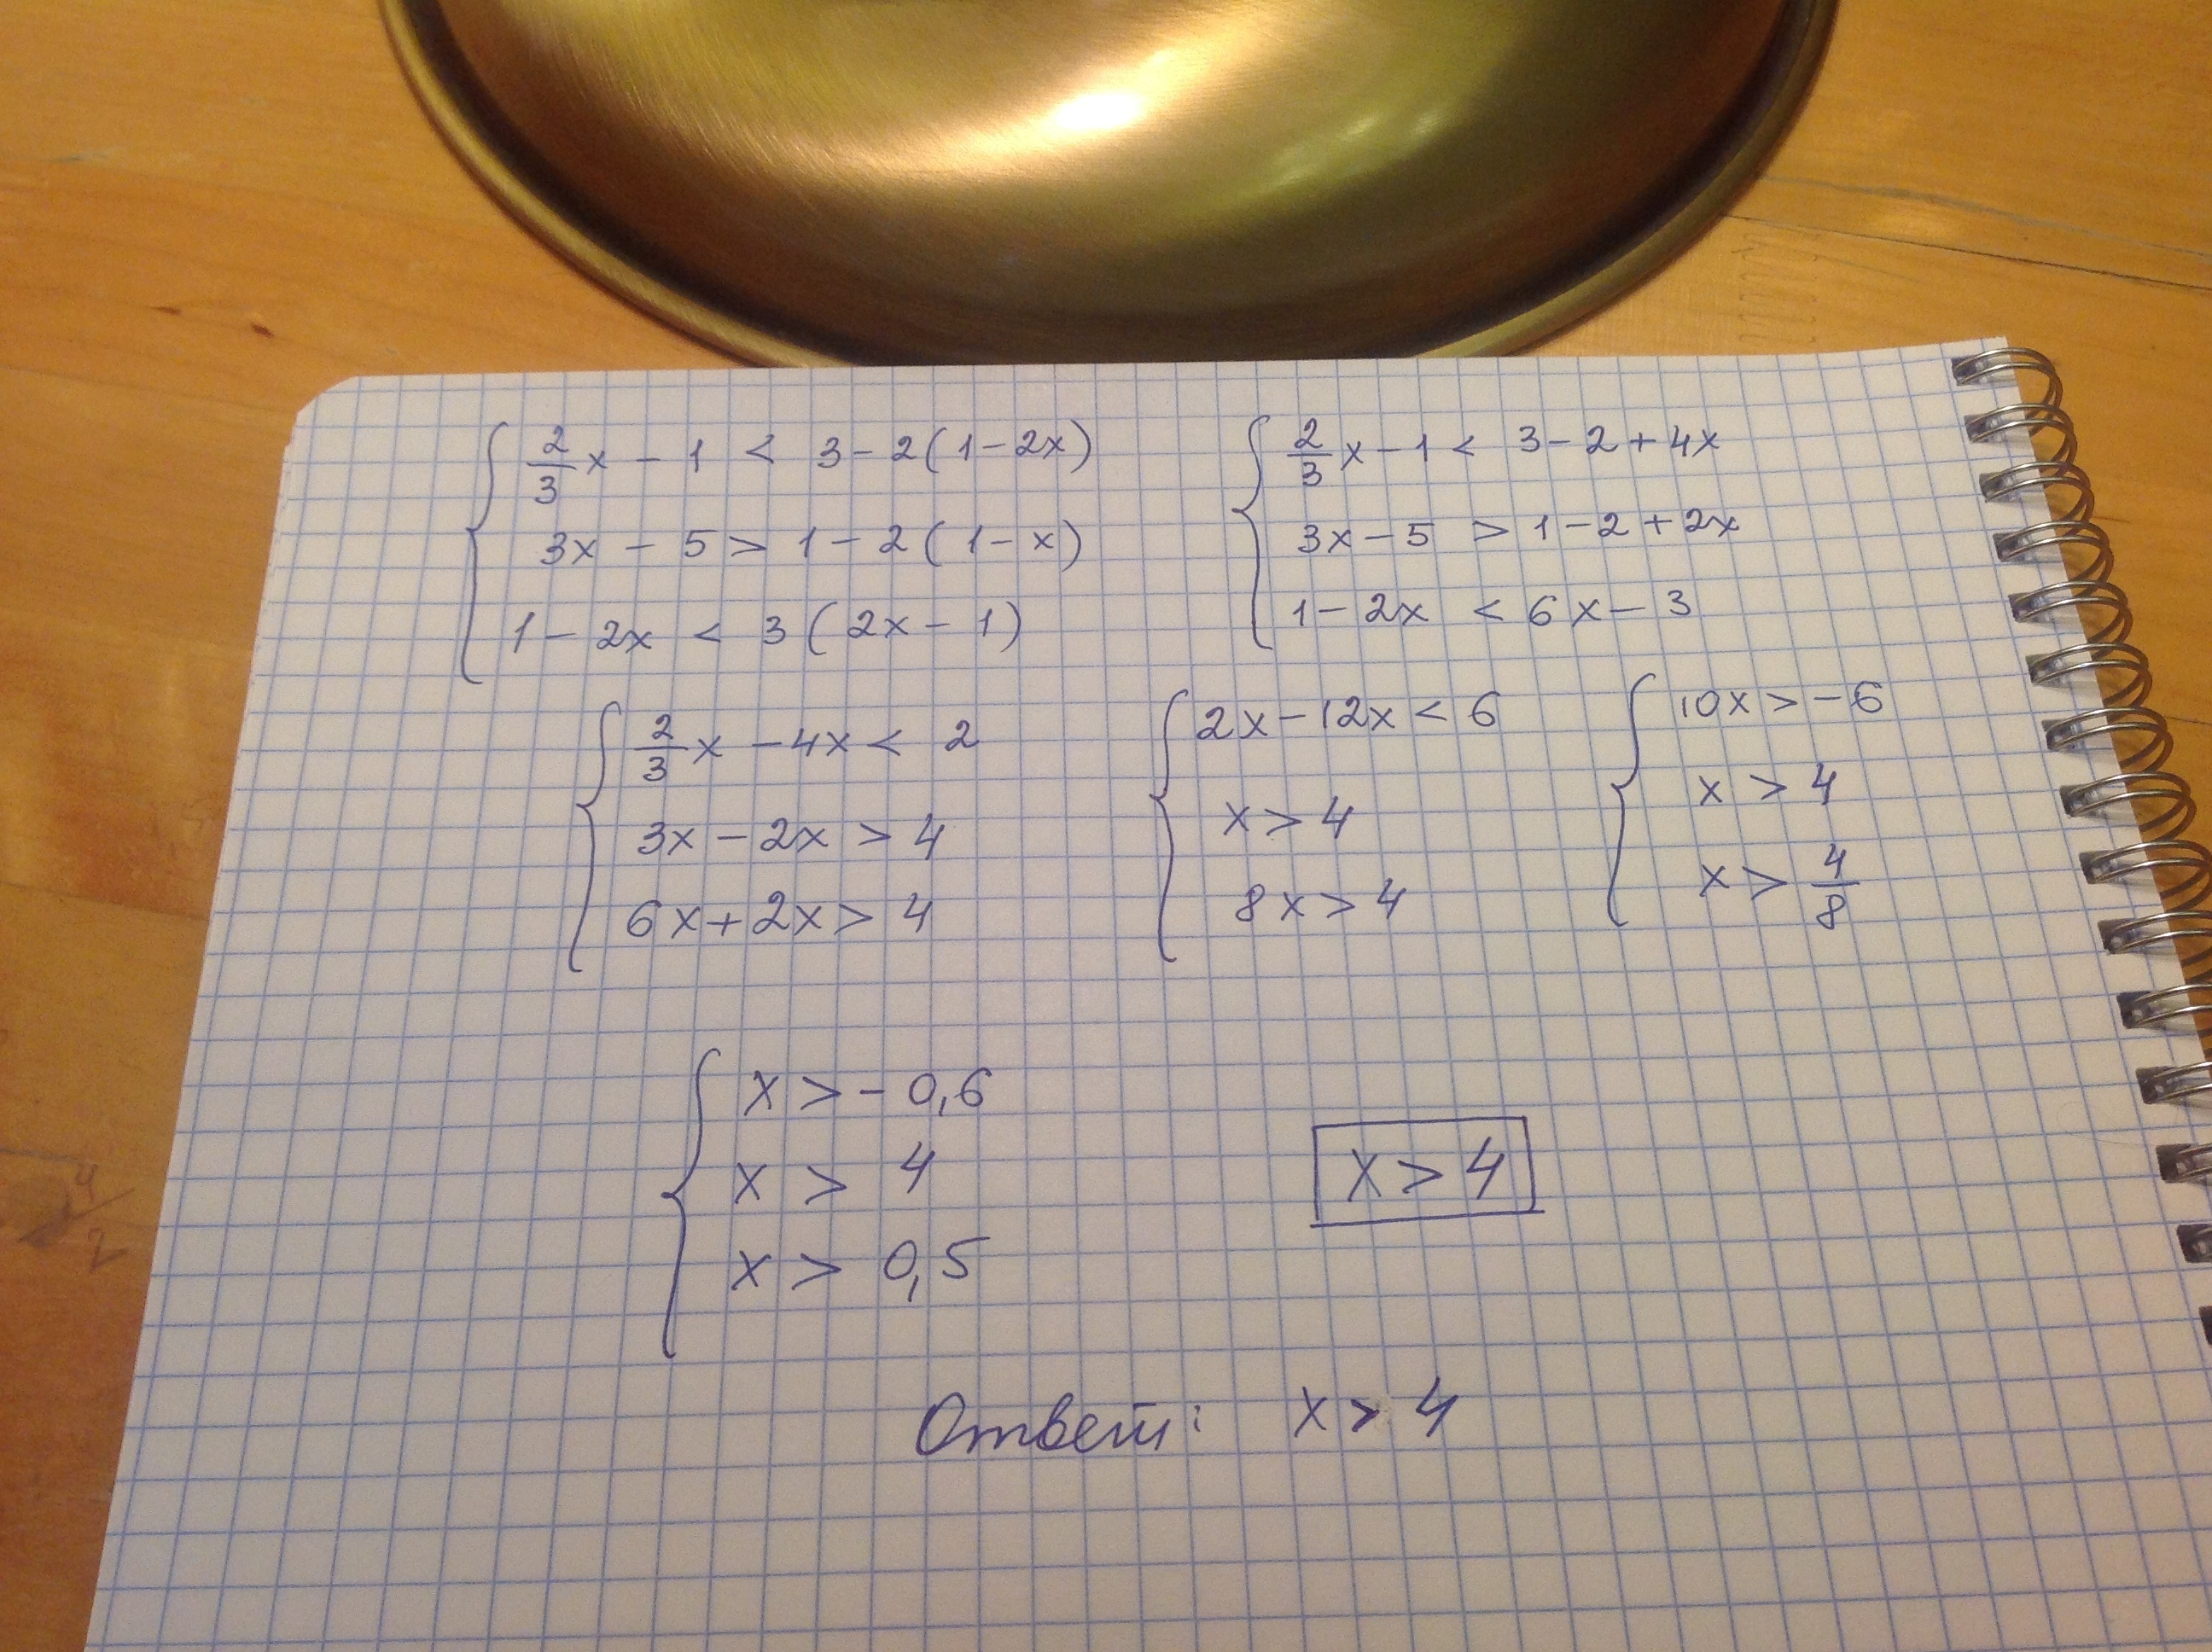 2/3 x - 1 < 3 - 2(1 - 2x)
3x - 5 > 1 - 2(1 - x)
1 - 2x < 3(2x - 1)
2/3 x - 1 < 3 - 2 + 4x
3x - 5 > 1 - 2 + 2x
1 - 2x < 6x - 3
2/3 x - 4x < 2
3x - 2x > 4
6x + 2x > 4
2x - 12x < 6
x > 4
8x > 4
10x > -6
x > 4
x > 4/8
x > -0,6
x > 4
x > 0,5
x > 4
Ответ: x > 4